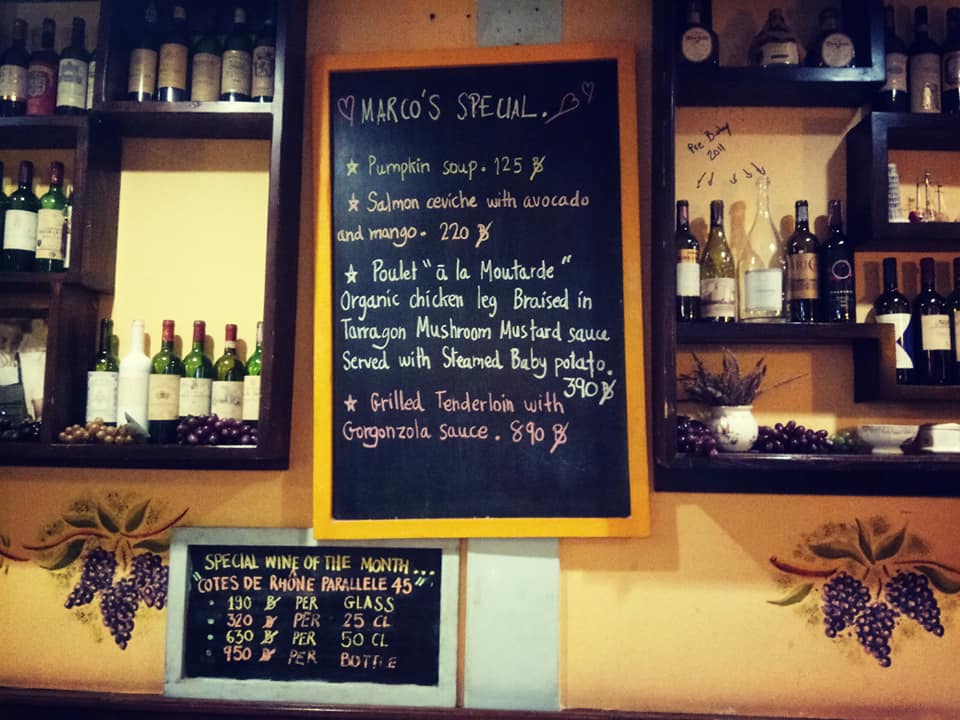 MARCO'S SPECIAL.
☆ Pumpkin soup. 125 ฿
☆ Salmon ceviche with avocado
and mango. 220 ฿
☆ Poulet "ā la Moutarde"
Organic chicken leg Braised in
Tarragon Mushroom Mustard sauce
Served with Steamed Baby potato.
390 ฿
☆ Grilled Tenderloin with
Gorgonzola sauce. 890 ฿
Pre Baby
2011
SPECIAL WINE OF THE MONTH...
"COTES DE RHÔNE PARALLELE 45"
• 190 ฿ PER GLASS
• 320 ฿ PER 25 CL
• 630 ฿ PER 50 CL
• 950 ฿ PER BOTTLE